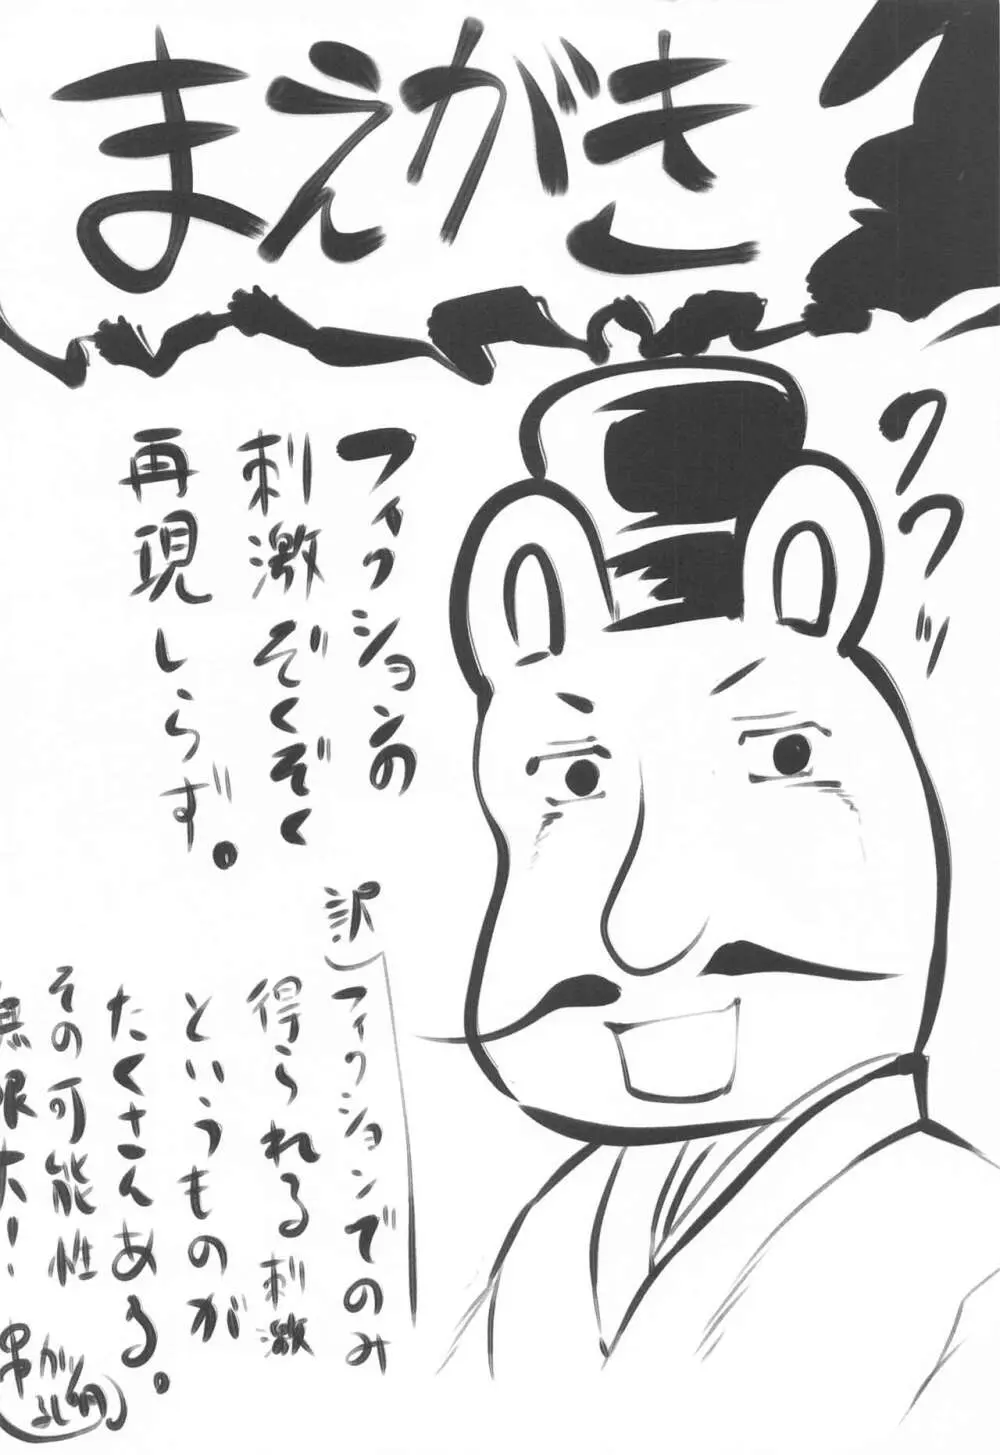 まえがき
クワッ
フィクションの
刺激ぞくぞく
再現しらず。
訳)
フィクションでのみ
得られる刺激
というものが
たくさんある。
その可能性
無限大!